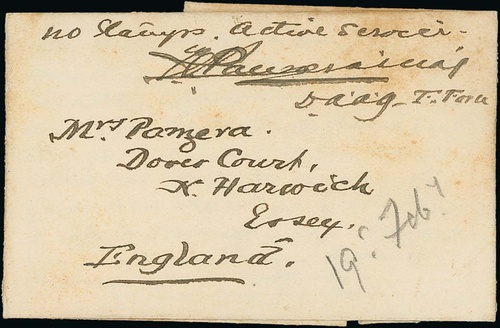 no Stamps. Active Service.
D.a.a.g. T. Force
Mrs Pamzera.
Dover Court,
N. Harwich
Essex.
England.
19. Feby